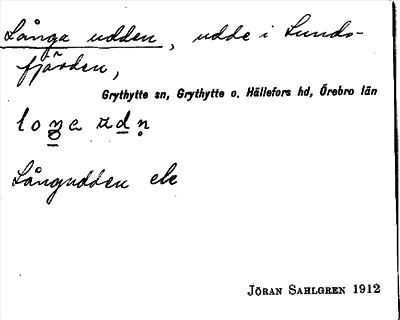 Långa udden, udde i Lunds-
fjärden,
Grythytte sn, Grythytte o. Hällefors hd, Örebro län
Långudden ek
JÖRAN SAHLGREN 1912